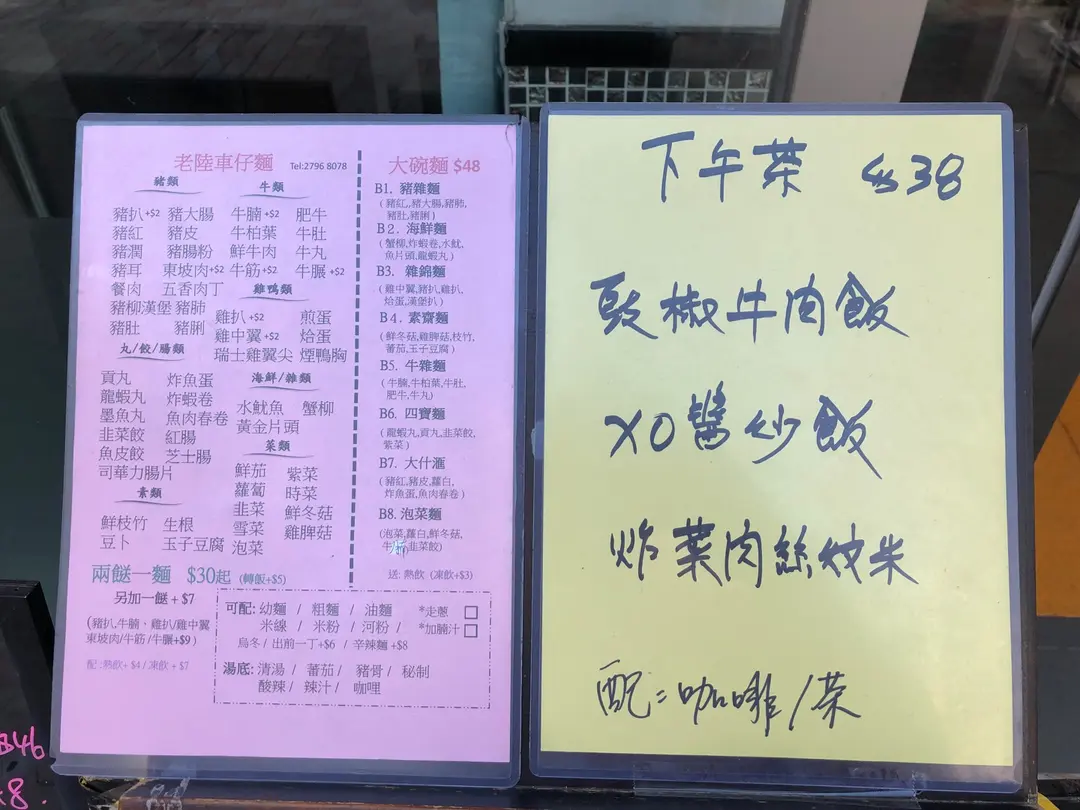 老陸車仔麵 Tel:2796 8078
豬類
豬扒+$2 豬大腸
豬紅 豬皮
豬潤 豬腸粉
豬耳 東坡肉+$2
餐肉 五香肉丁
豬柳漢堡 豬肺
豬肚 豬脷
牛類
牛腩+$2 肥牛
牛柏葉 牛肚
鮮牛肉 牛丸
牛筋+$2 牛𦟌+$2
雞鴨類
雞扒+$2 煎蛋
雞中翼+$2 烚蛋
瑞士雞翼尖 煙鴨胸
丸/餃/腸類
貢丸 炸魚蛋
龍蝦丸 炸蝦卷
墨魚丸 魚肉春卷
韭菜餃 紅腸
魚皮餃 芝士腸
司華力腸片
海鮮/雜類
水魷魚 蟹柳
黃金片頭
菜類
鮮茄 紫菜
蘿蔔 時菜
韭菜 鮮冬菇
雪菜 雞脾菇
泡菜
素類
鮮枝竹 生根
豆卜 玉子豆腐
兩餸一麵 $30起 (轉飯+$5)
另加一餸+$7
(豬扒,牛腩、雞扒/雞中翼
東坡肉/牛筋/牛𦟌+$9)
配:熱飲+$4/凍飲+$7
可配: 幼麵 / 粗麵 / 油麵 *走蔥
米線 / 米粉 / 河粉 / *加腩汁
烏冬/出前一丁+$6 / 辛辣麵+$8
湯底: 清湯 / 蕃茄/ 豬骨 / 秘制
酸辣/ 辣汁/ 咖喱
大碗麵 $48
B1. 豬雜麵
(豬紅,豬大腸,豬肺,
豬肚,豬脷)
B2. 海鮮麵
(蟹柳,炸蝦卷,水魷,
魚片頭,龍蝦丸)
B3. 雜錦麵
(雞中翼,豬扒,雞扒,
烚蛋,漢堡扒)
B4. 素齋麵
(鮮冬菇,雞脾菇,枝竹,
蕃茄,玉子豆腐)
B5. 牛雜麵
(牛腩,牛柏葉,牛肚,
肥牛,牛丸)
B6. 四寶麵
(龍蝦丸,貢丸,韭菜餃,
紫菜)
B7. 大什滙
(豬紅,豬皮,蘿白,
炸魚蛋,魚肉春卷)
B8. 泡菜麵
(泡菜,蘿白,鮮冬菇,
韭菜餃)
送: 熱飲 (凍飲+$3)
下午茶 $38
豉椒牛肉飯
XO醬炒飯
炸菜肉絲炆米
配:咖啡/茶